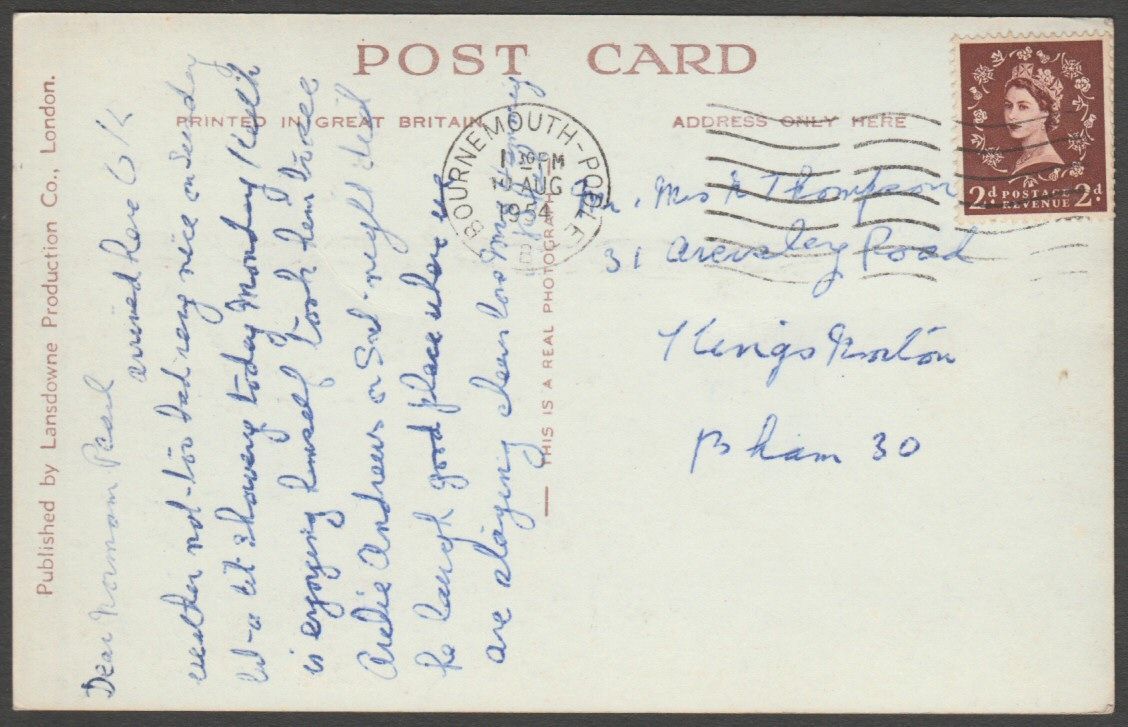 POST CARD
PRINTED IN GREAT BRITAIN
ADDRESS ONLY HERE
Published by Lansdowne Production Co., London.
THIS IS A REAL PHOTOGRAPH
BOURNEMOUTH-POOLE
1 30 PM
AUG
1954
2d POSTAGE REVENUE 2d
Mrs N Thompson
31 Road
Kings Norton
B'ham 30
Dear Norman Pearl
arrived here O/K
weather not too bad very nice on Sunday
but a bit showery today Monday Keith
is enjoying himself took him to see
Archie Andrews on Sat-night did
he laugh good place where we
are staying cheerio